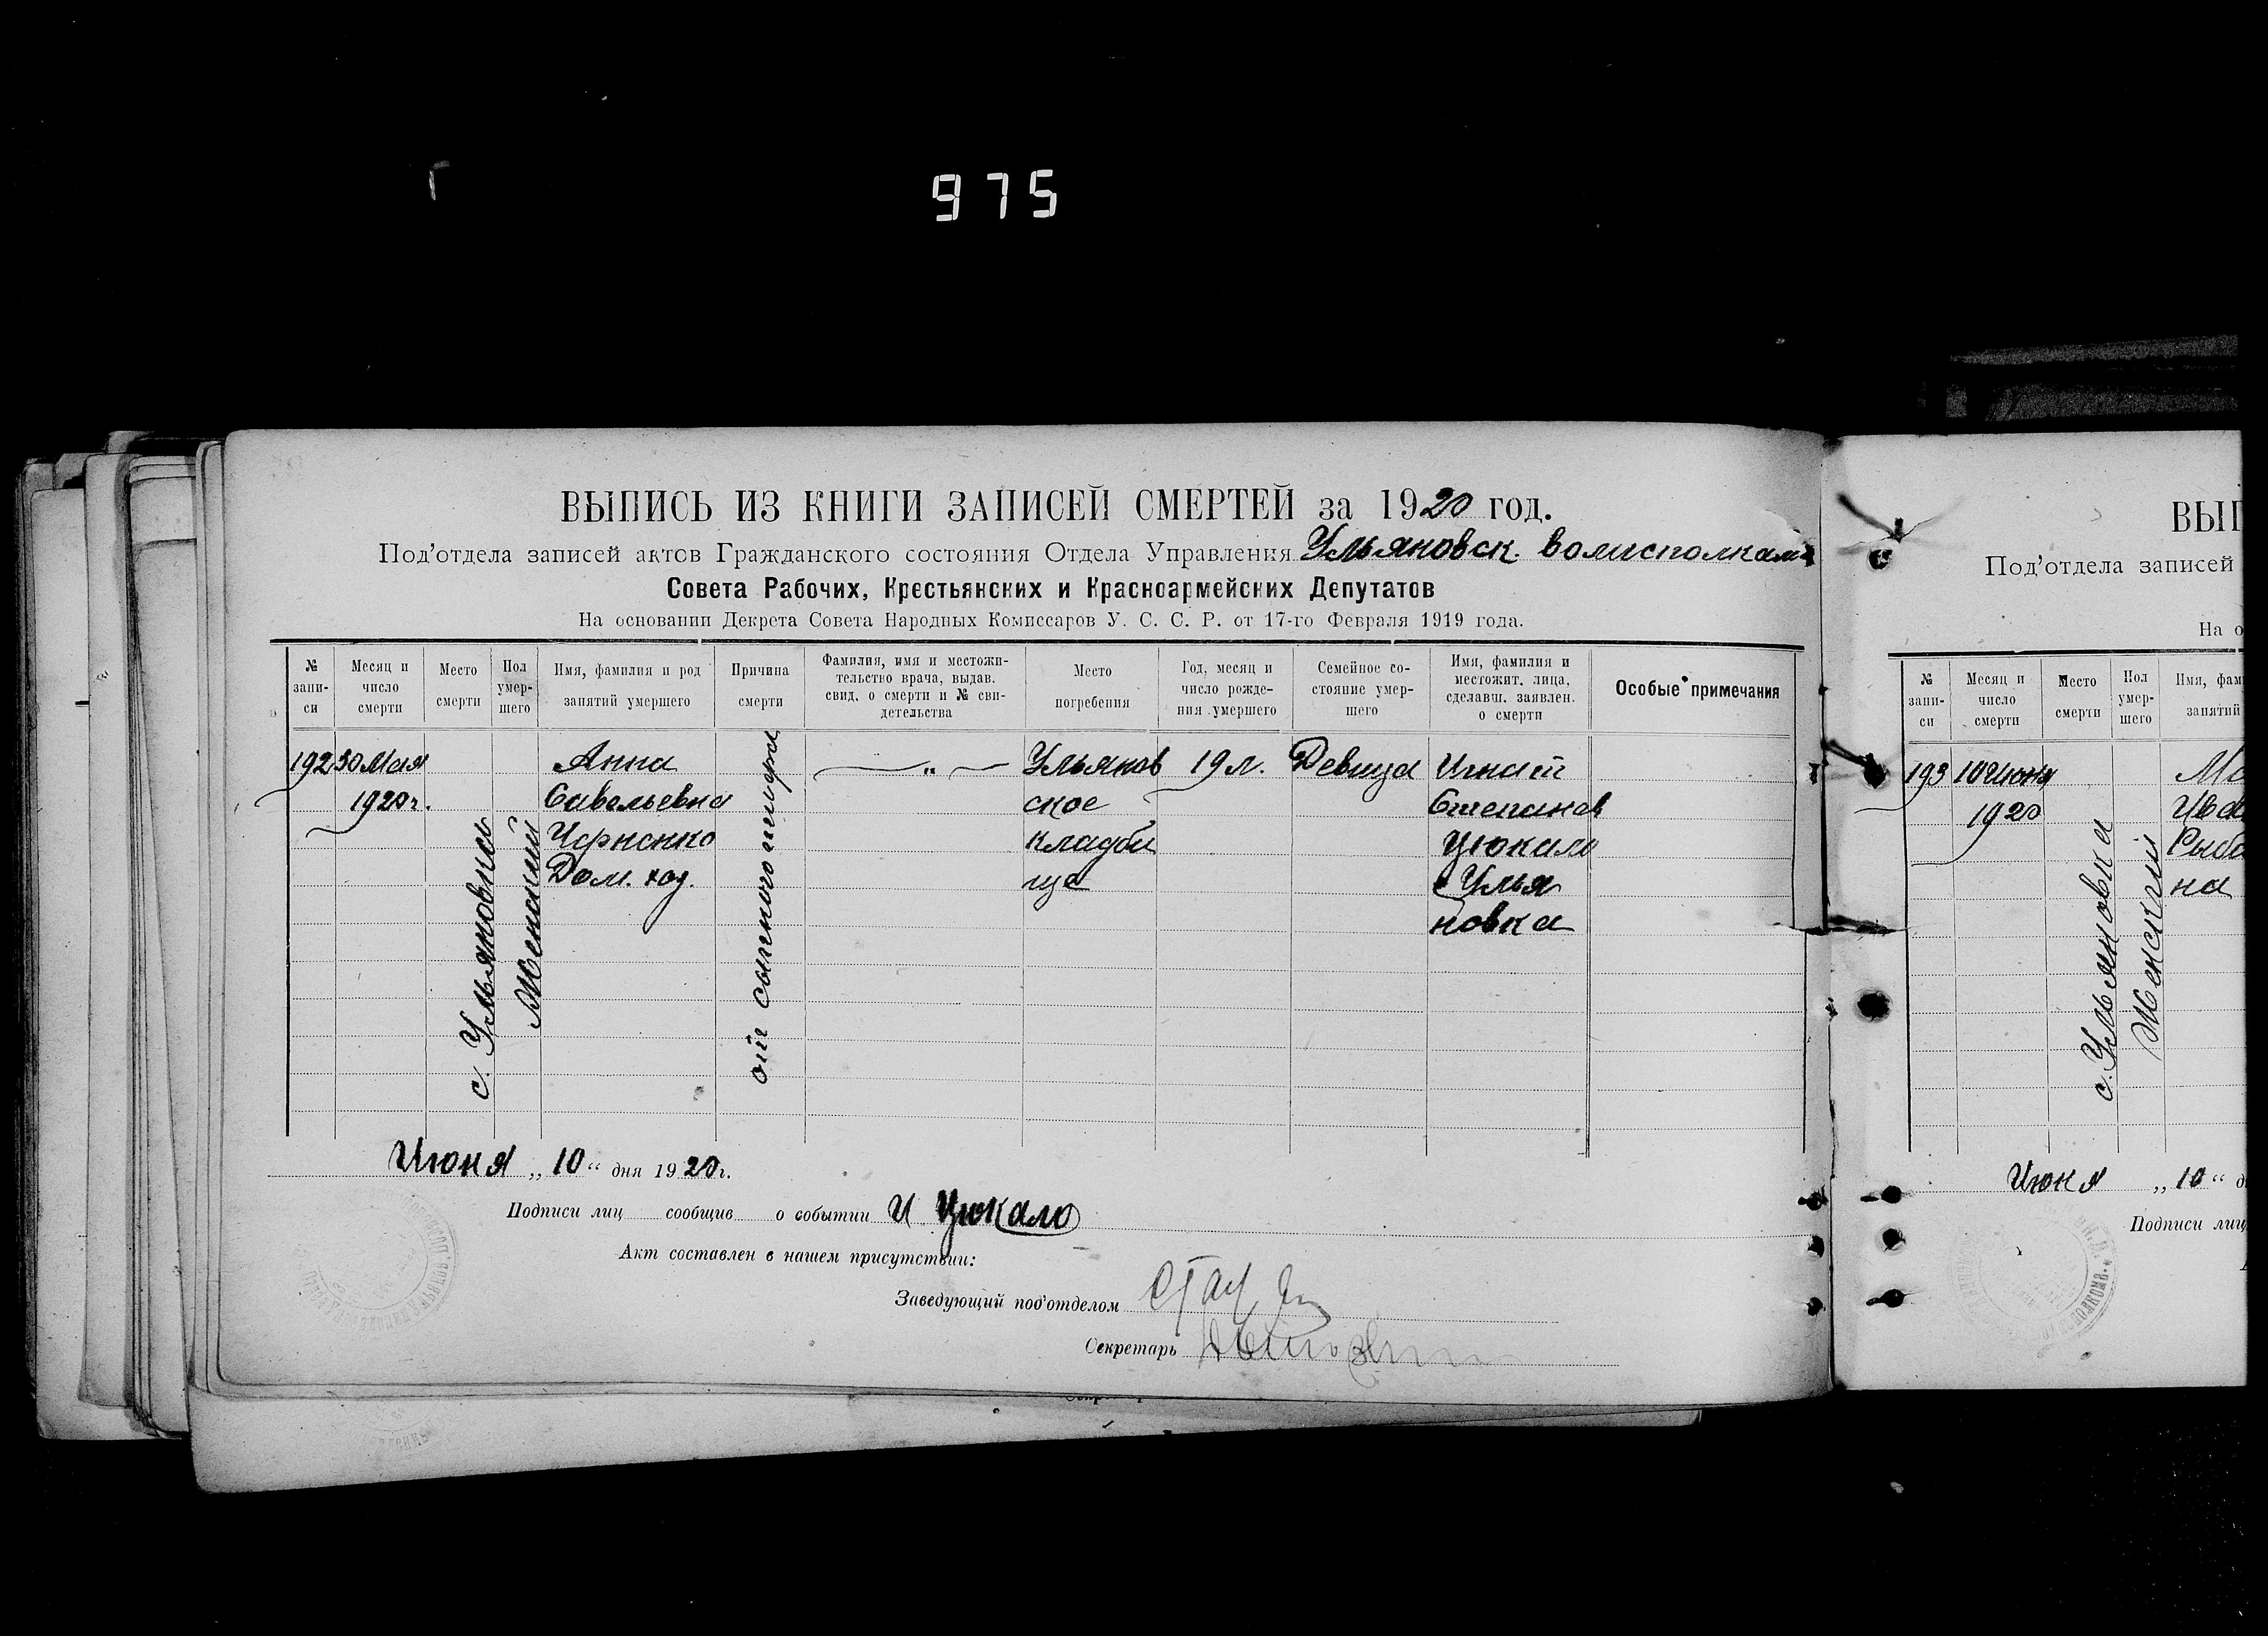 975
ВЫПИСЬ ИЗ КНИГИ ЗАПИСЕЙ СМЕРТЕЙ за 1920 год.
Под'отдела записей актов Гражданского состояния Отдела Управления Ульяновск. волисполкома
Совета Рабочих, Крестьянских и Красноармейских Депутатов
На основании Декрета Совета Народных Комиссаров У. С. С. Р. от 17-го Февраля 1919 года.
№ запи-си
Месяц и число смерти
Место смерти
Пол умер-шего
Имя, фамилия и род занятий умершего
Причина смерти
Фамилия, имя и местожи-тельство врача, выдав. свид. о смерти и № сви-детельства
Место погребения
Год, месяц и число рожде-ния умершего
Семейное со-стояние умер-шего
Имя, фамилия и местожит. лица, сделавш. заявлен. о смерти
Особые примечания
192
30 Мая
1920 г.
с. Ульяновка
Женский
Анна
Савельевна
Черненко
Дом. хоз.
от сыпного тифа
— „ —
Ульянов
ское
кладби
ще
19 л.
Девица
Игнат
Степанов
Цюкало
с Улья
новка
Июня „ 10 “ дня 1920 г.
Подписи лиц сообщив о событии И Цюкало
Акт составлен в нашем присутствии:
Заведующий под'отделом
Секретарь
ВЫП
Под'отдела записей
На о
№ запи-си
Месяц и число смерти
Место смерти
Пол умер-шего
Имя, фам
занятий
193
10 Июня
1920
с. Ульяновка
Женский
на
Июня „ 10 “ д
Подписи лиц